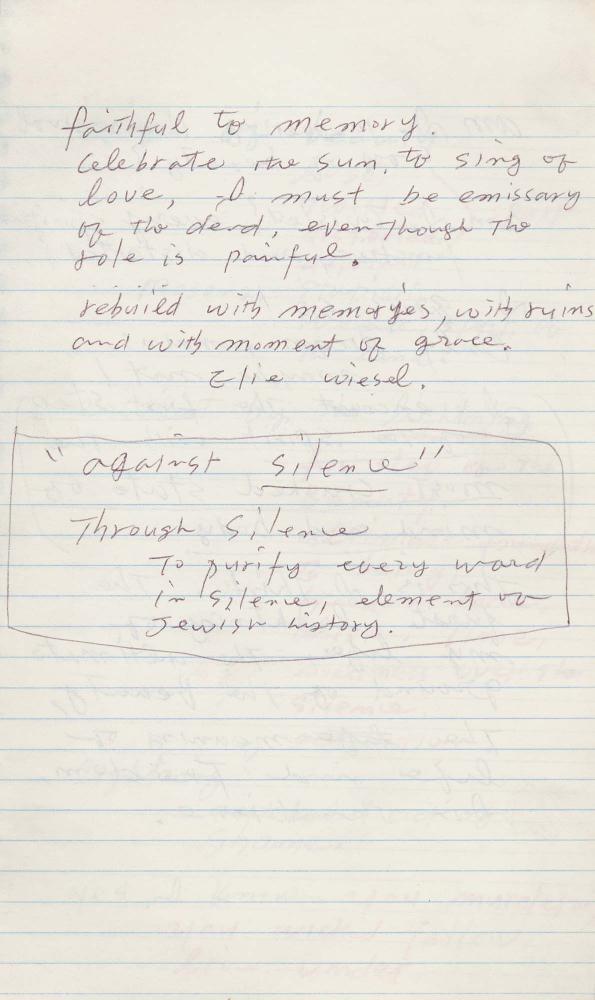 faithful to memory.
Celebrate the sun, to sing of
love, I must be emissary
of the dead, even though the
role is painful.
rebuild with memoryes, with ruins
and with moment of grace.
Elie wiesel.
"against silence"
Through silence
To purify every word
in silence, element of
Jewish history.